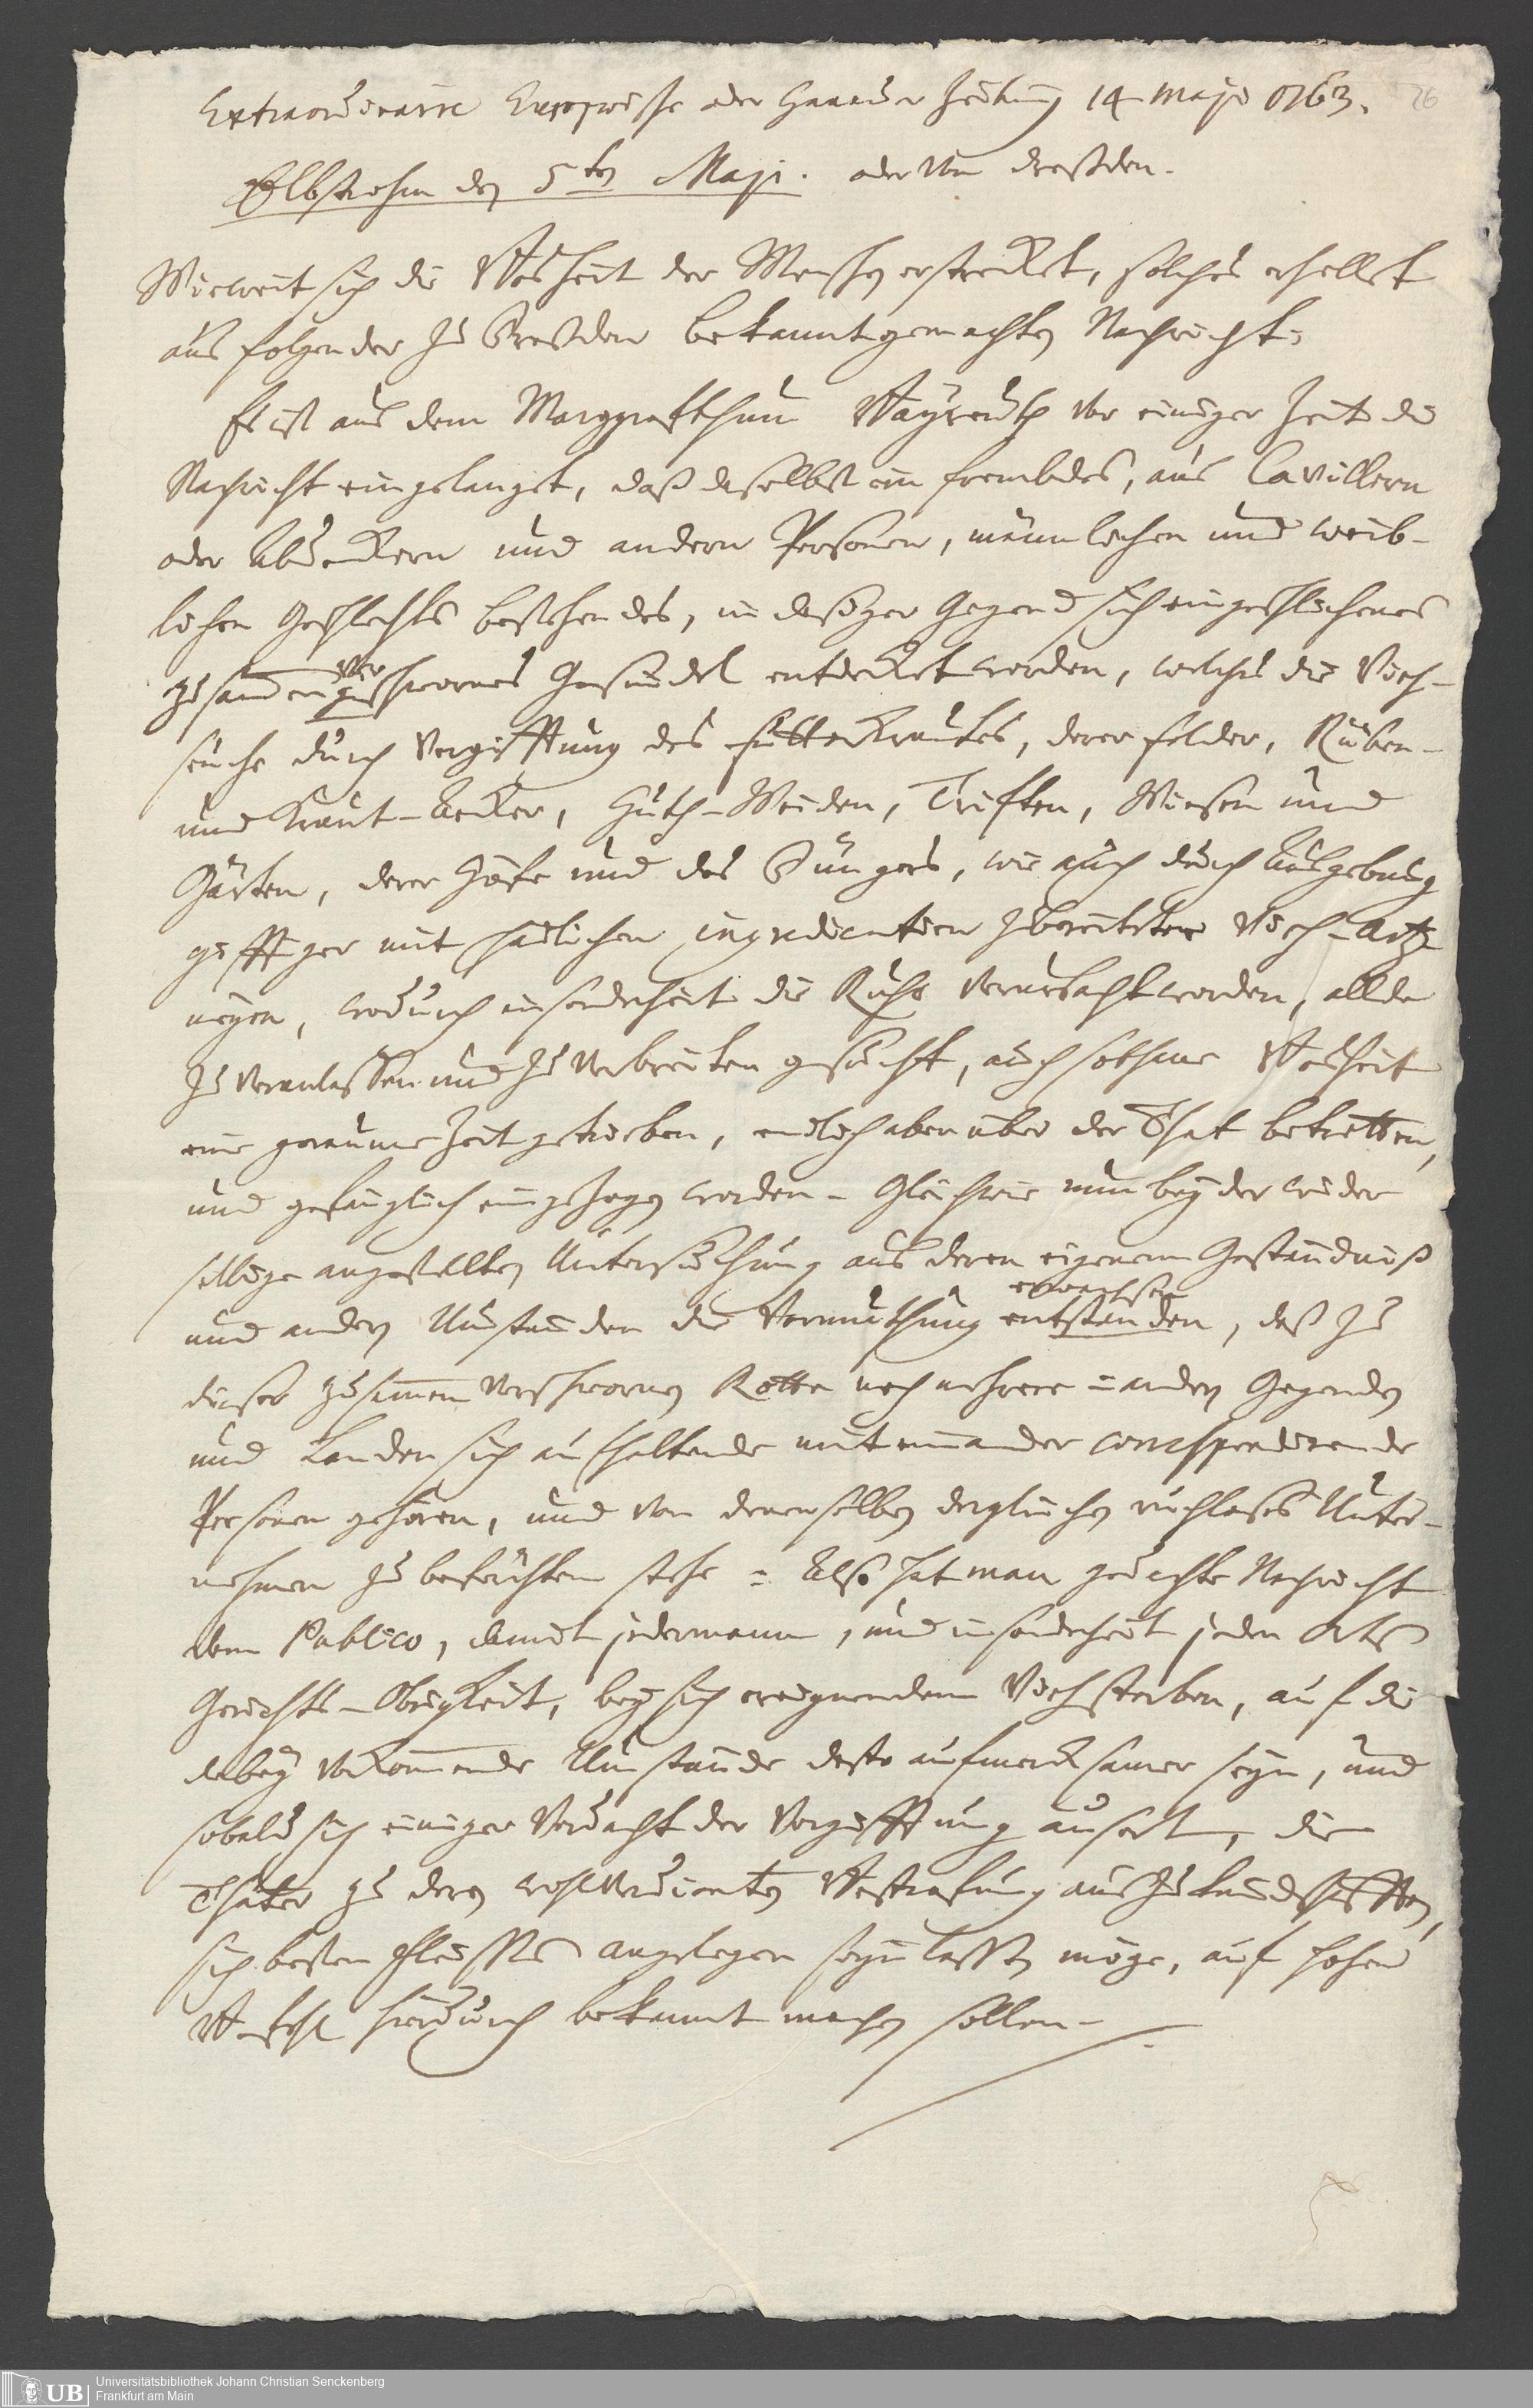 Extraordinaire Europæische oder Hanauer Zeitung 14 Maji 1763. 26
Elbstrohm den 5ten Maji. oder von Dresden.
Wie weit sich die Bosheit der Menschen erstrecket, solches erhellet
aus folgender zu Dresden bekanntgemachten Nachricht:
Es ist aus dem Marggrafthum Bayreuth vor einiger Zeit die
Nachricht eingelanget, daß daselbst ein fremdes, aus Cavillern
oder Abdeckern und andern Personen, männlichen und weib-
lichen Geschlechts bestehendes, in dasiger Gegend sich eingeschlichenes
zusammen ver geschwornes Gesindel entdecket worden, welches die Vieh-
seuche durch Vergifftung des Futterkrautes, derer Felder, Rüben-
und Kraut-Aecker, Huth-Weiden, Triften, Wiesen und
Gärten, derer Höfe und des Düngers, wie auch durch Ausgebung
gifftiger mit schädlichen ingredientien zubereiteter Vieh-Artz
neyen, wodurch insonderheit die Ruhr verursacht worden, allda
zu veranlassen und zu verbreiten gesucht, auch sothane Bosheit
eine geraume Zeit getrieben, endlich aber über der That betretten,
und gefänglich eingezogen worden. Gleichwie nun bey der wieder
selbige angestellten Untersuchung aus deren eigenem Geständniß
und andern Umständen die Vermuthung entstanden erwachsen, daß zu
dieser zusammen verschwornen Rotte noch mehrere in andern Gegenden
und Landen sich aufhaltende mit einander correspondirende
Personen gehören, und von denenselben dergleichen ruchloses Unter-
nehmen zu befürchten stehe: Also hat man gedachte Nachricht
dem Publico, damit jedermann, und insonderheit jeden Orts
Gerichts-Obrigkeit, bey sich ereignendem Viehsterben, auf die
dabey vorkommende Umstände desto aufmercksamer seyn, und
sobald sich einiger Verdacht der Vergifftung äusert, die
Thäter zu deren wohlverdienten Bestrafung auszukundschafften,
sich besten Fleisses angelegen seyn lassen möge, auf hohen
Befehl hierdurch bekannt machen sollen.
Universitätsbibliothek Johann Christian Senckenberg
Frankfurt am Main
UB